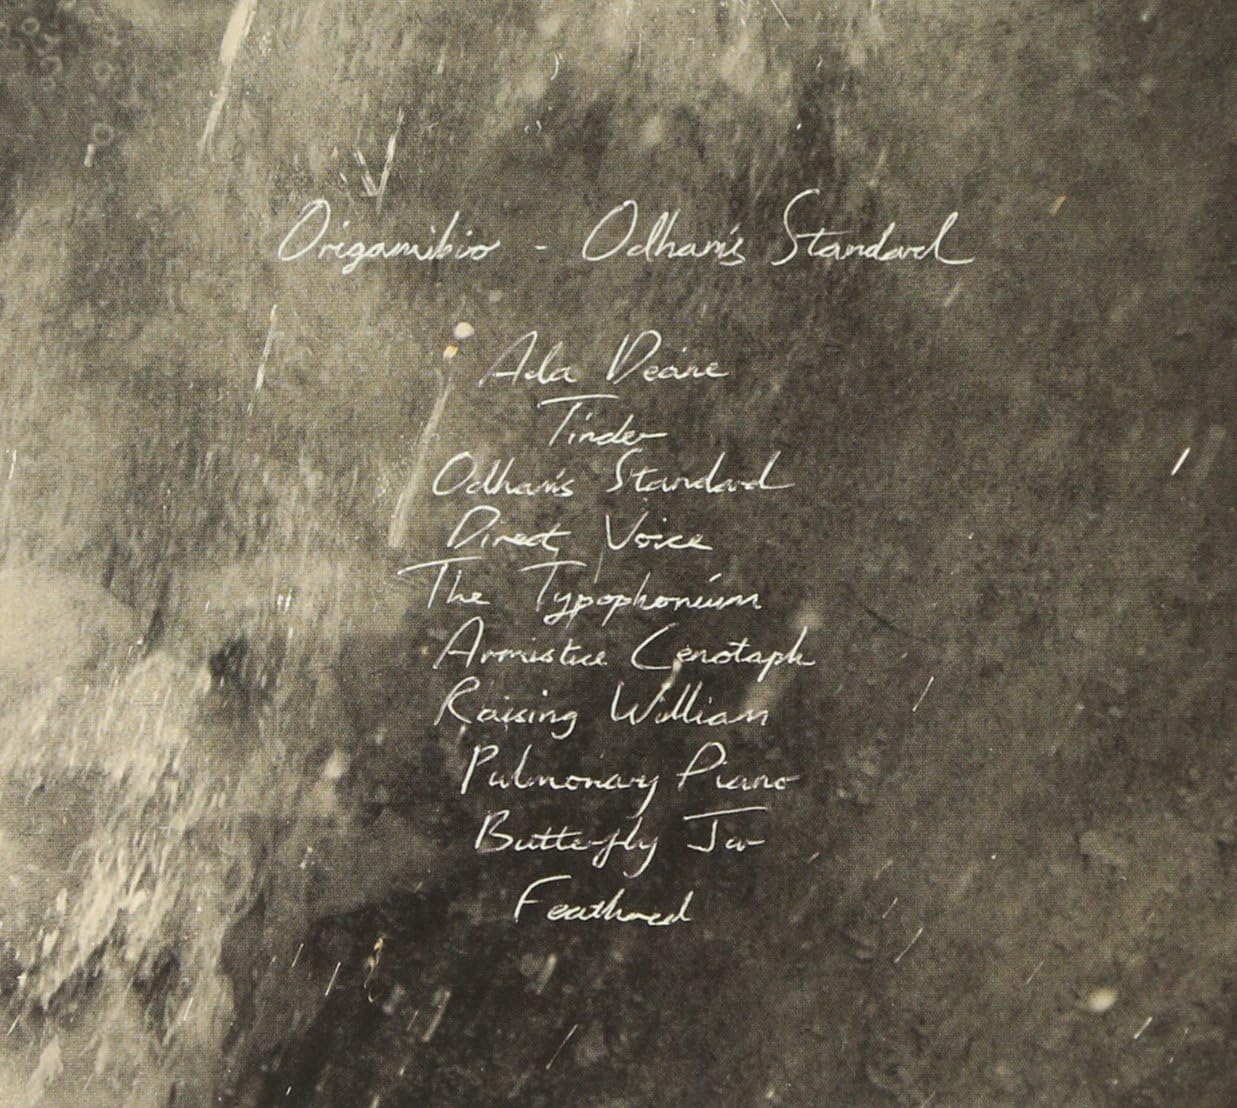 Origamibiro - Odham's Standard
Ada Deane
Tinder
Odham's Standard
Direct Voice
The Typophonium
Armistice Cenotaph
Raising William
Pulmonary Piano
Butterfly Jar
Feathered